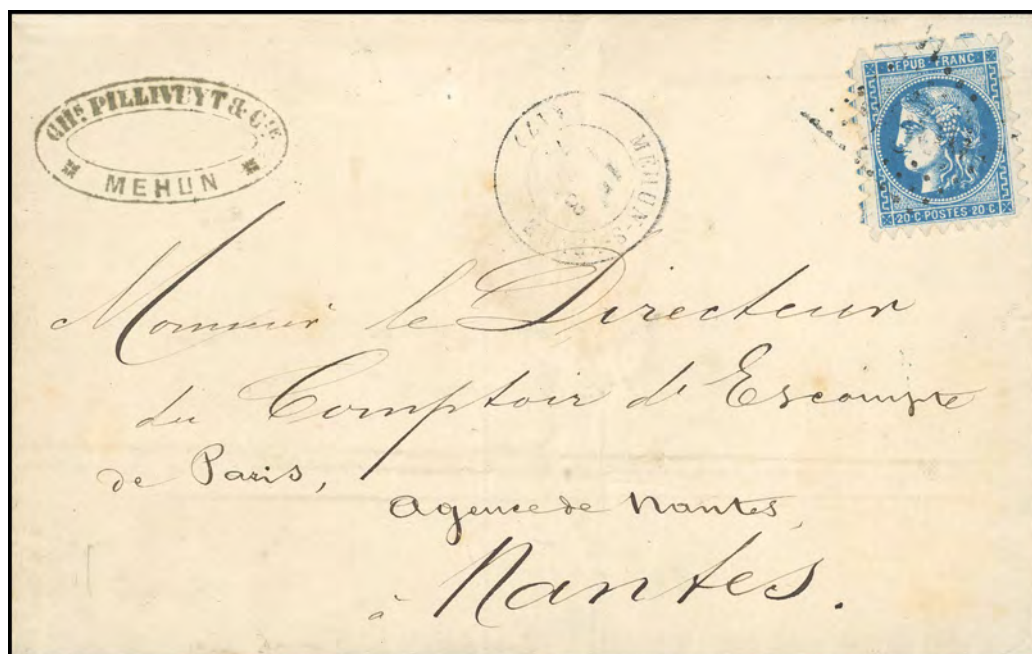 CHs. PILLIVUYT & CIE
MEHUN
MEHUN-S
(17)
REPUB. FRANC
20 • C POSTES 20 C
Monsieur le Directeur
du Comptoir d'Escompte
de Paris,
agence de Nantes,
à Nantes.